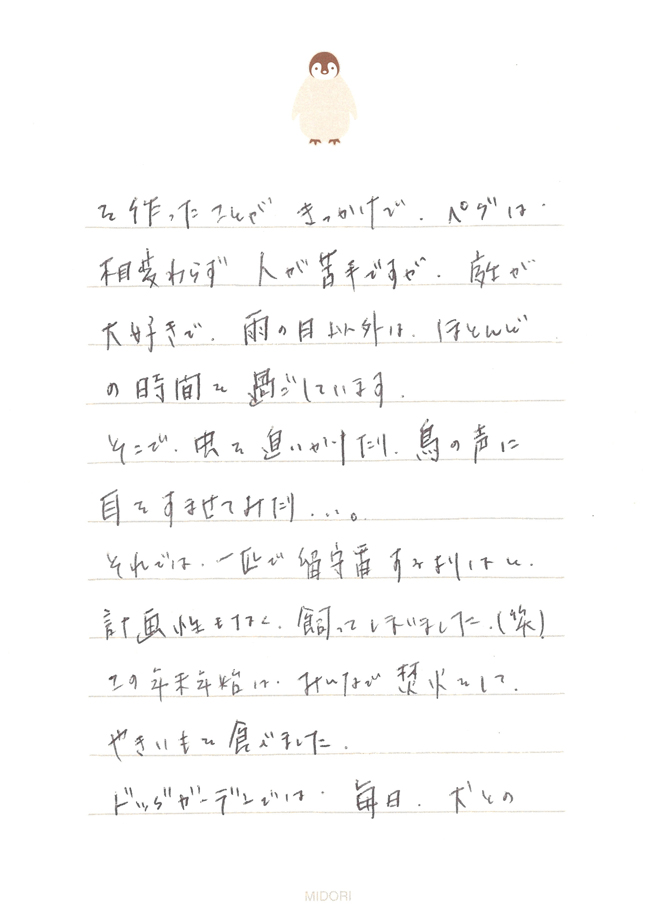 を作ったことがきっかけで、ペグは、
相変わらず 人が苦手ですが、庭が
大好きで、雨の日以外は、ほとんど
の時間を過ごしています。
そこで、虫を追いかけたり、鳥の声に
耳をすませてみたり...。
それでは、一匹で留守番するよりはと、
計画性もなく、飼ってしまいました。(笑)
この年末年始は、みんなで焚火をして、
やきいもを食べました。
ドッグガーデンでは、毎日、犬との
MIDORI